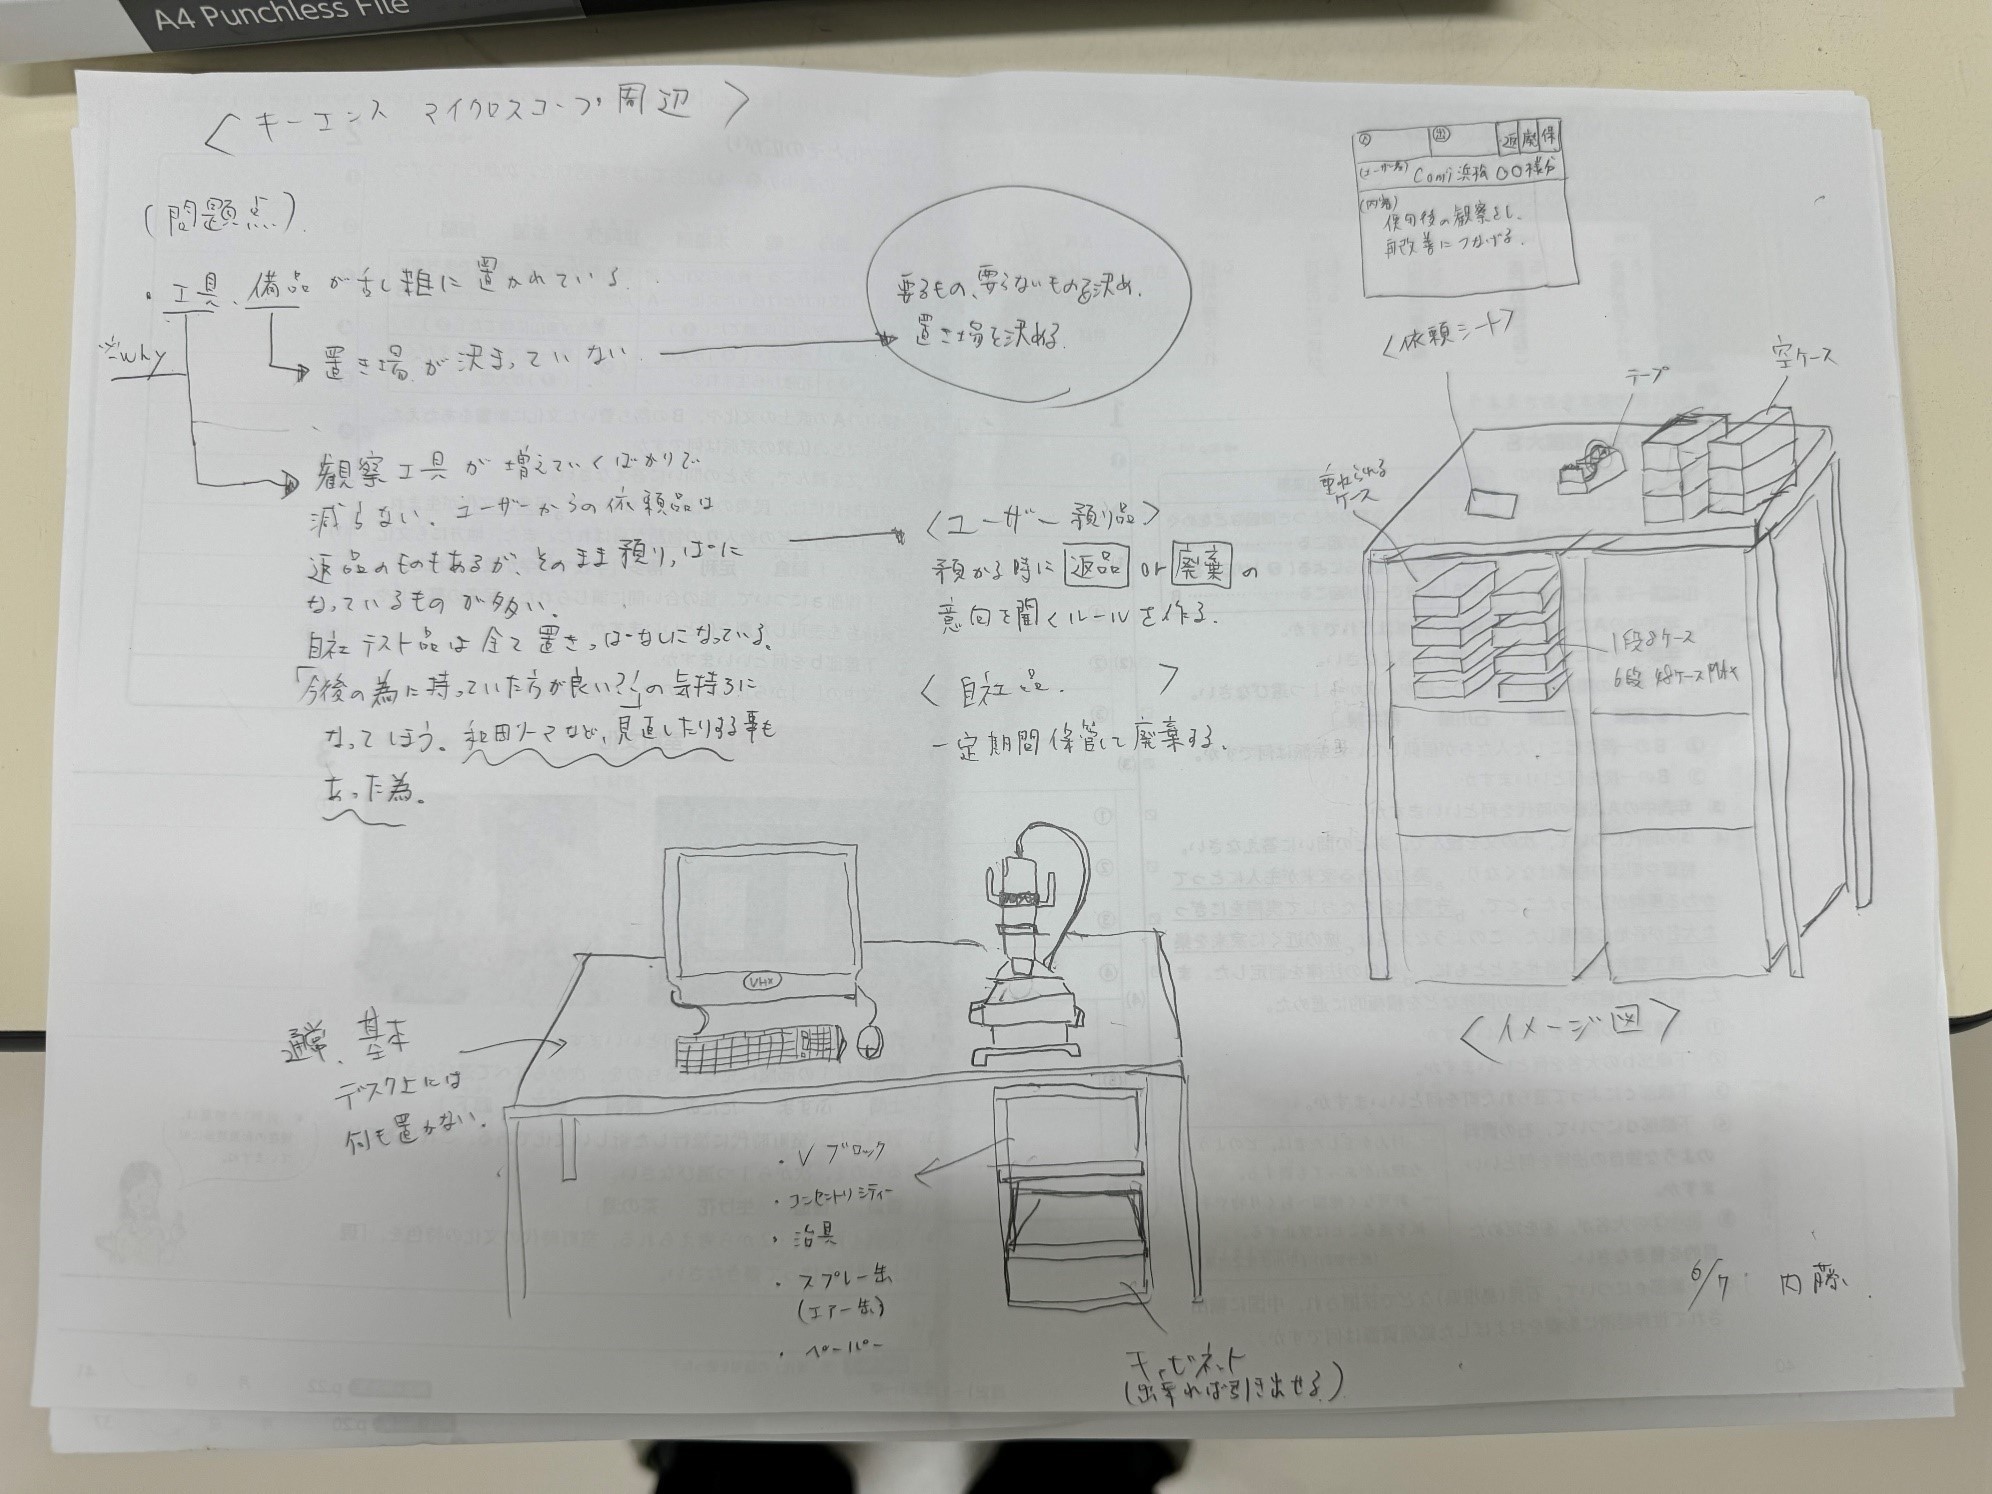 A4 Punchless File
<キーエンス マイクロスコープ周辺>
(問題点).
・工具、備品が乱雑に置かれている.
※why
置き場が決まっていない.
要るもの、要らないものを決め.
置き場を決める.
観察工具が増えていくばかりで
減らない、ユーザーからの依頼品は
返品のものもあるが、そのまま預り、ぱに
なっているものが多い.
自社テスト品は全て置きっぱなしになっている。
「今後の為に持っていた方が良い?」の気持ちに
なってしまう。和田リーマなど、見直したりする事も
あった為。
<ユーザー預り品>
預かる時に 返品 or 廃棄 の
意向を聞くルールを作る.
<自社品.>
一定期間保管して廃棄する.
入 出 返 廃 保
(ユーザー名) 浜松 〇〇様分
(内容)
使用後の観察をし.
再改善につなげる.
<依頼シート>
テープ
空ケース
重ねられる
ケース
1段8ケース
6段 48ケース
<イメージ図>
VHX
通常、基本
デスク上には
何も置かない.
・Vブロック
・コンセントリシティー
・治具
・スプレー缶
(エアー缶)
・ペーパー
キャビネット
(出来れば引き出せる)
6/7 内藤.